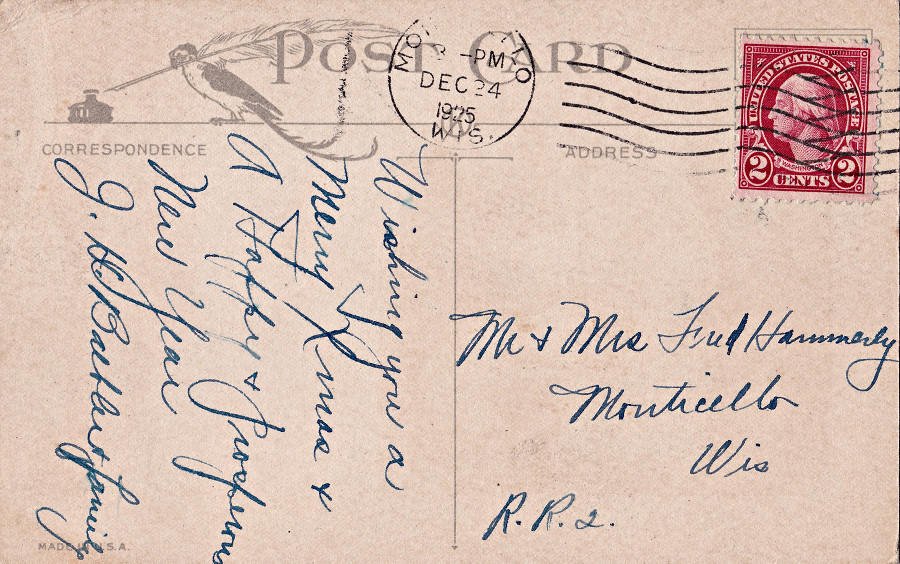 POST CARD
3 -PM
DEC 24
1925
WIS.
UNITED STATES POSTAGE
WASHINGTON
2 CENTS 2
CORRESPONDENCE
ADDRESS
Wishing you a
Merry Xmas &
A Happy & Prosperous
New Year
J. H.
Family
Mr & Mrs Fred Hammerly
Monticello
Wis
R.R. 2.
MADE IN U.S.A.